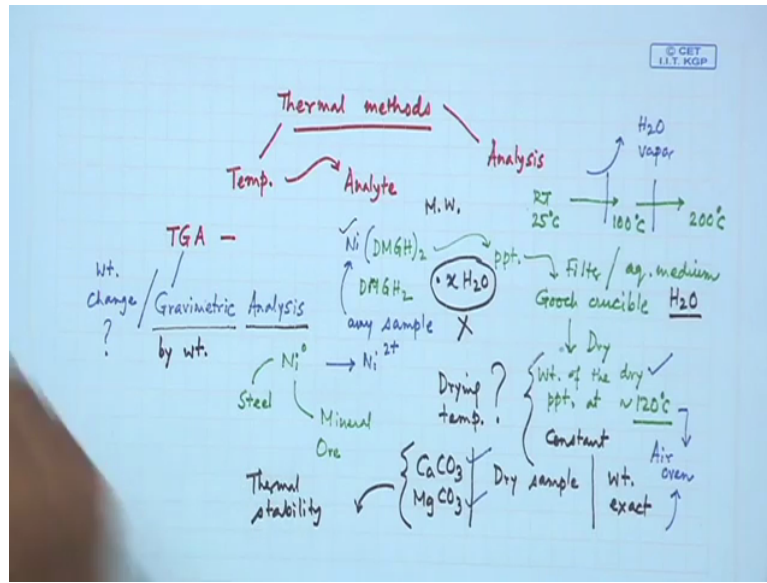 © CET
I.I.T. KGP
Thermal methods
Temp.
Analyte
Analysis
H2O
vapar
RT
25°C
100°C
200°C
M.W.
TGA —
Wt.
change
?
Gravimetric Analysis
by wt.
Ni(DMGH)2
DMGH2
any sample
ppt.
. x H2O
X
Filter / aq. medium
Gooch crucible H2O
Ni° → Ni2+
Steel
Mineral
Ore
Dry
Wt. of the dry
ppt. at ~ 120°C
Constant
Drying
temp. ?
Air
oven
Thermal
stability
CaCO3
MgCO3
Dry sample
wt.
exact